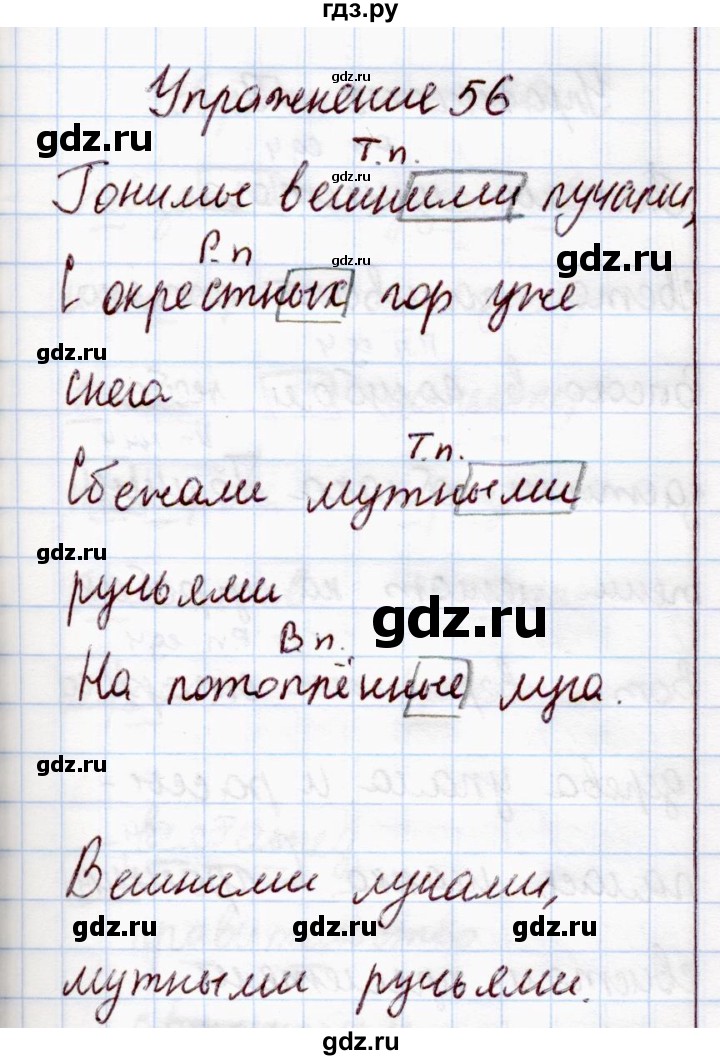 гдз.ру
gdz.ru
Упражнение 56
gdz.ru
gdz.ru
Т.п.
gdz.ru
Гонимы вешними лучами,
gdz.ru
Р.п
gdz.ru
С окрестных гор уже
gdz.ru
снега
Т.п.
Сбежали мутными
gdz.ru
ручьями
gdz.ru
В п.
На потоплённые луга.
gdz.ru
Вешними лучами,
gdz.ru
gdz.ru
мутными ручьями.
gdz.ru